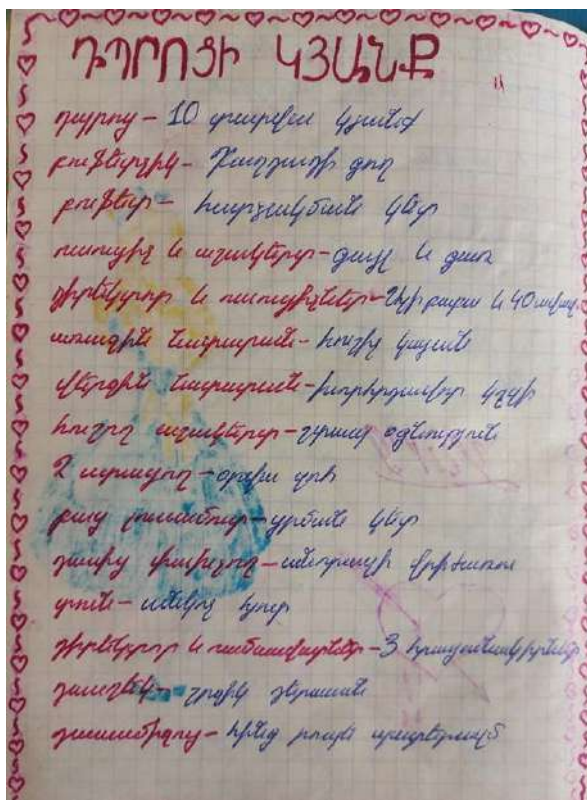 ԴՊՐՈՑԻ ԿՅԱՆՔ
դպրոց – 10 տարվա կյանք
բուֆետչիկ – Բաղդադի գող
բուֆետ – հարձակման կետ
ուսուցիչ և աշակերտ – գայլ և գառ
դիրեկտոր և ուսուցիչներ – Ալի բաբա և 40 ավազ
առաջին նստարան – հուզիչ կայան
վերջին նստարան – խորհրդավոր կղզի
հուշող աշակերտ – շտապ օգնություն
2 ստացող – օրվա զոհ
բաց լուսամուտ – ցրման կետ
դասից փախչող – անորսալի վրիժառու
տուն – անկոչ հյուր
դիրեկտոր և ուսմասվարներ – 3 հրացանակիրներ
դասղեկ – շրջիկ դերասան
դասամիջոց – հինգ րոպե պատերազմ